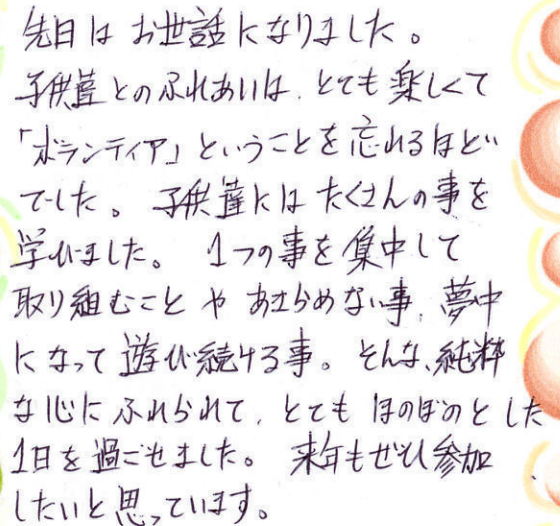 先日はお世話になりました。
子供達とのふれあいは、とても楽しくて
「ボランティア」ということを忘れるほど
でした。子供達にはたくさんの事を
学びました。1つの事を集中して
取り組むことやあきらめない事、夢中
になって遊び続ける事。そんな、純粋
な心にふれられて、とてもほのぼのとした
1日を過ごせました。来年もぜひ参加
したいと思っています。